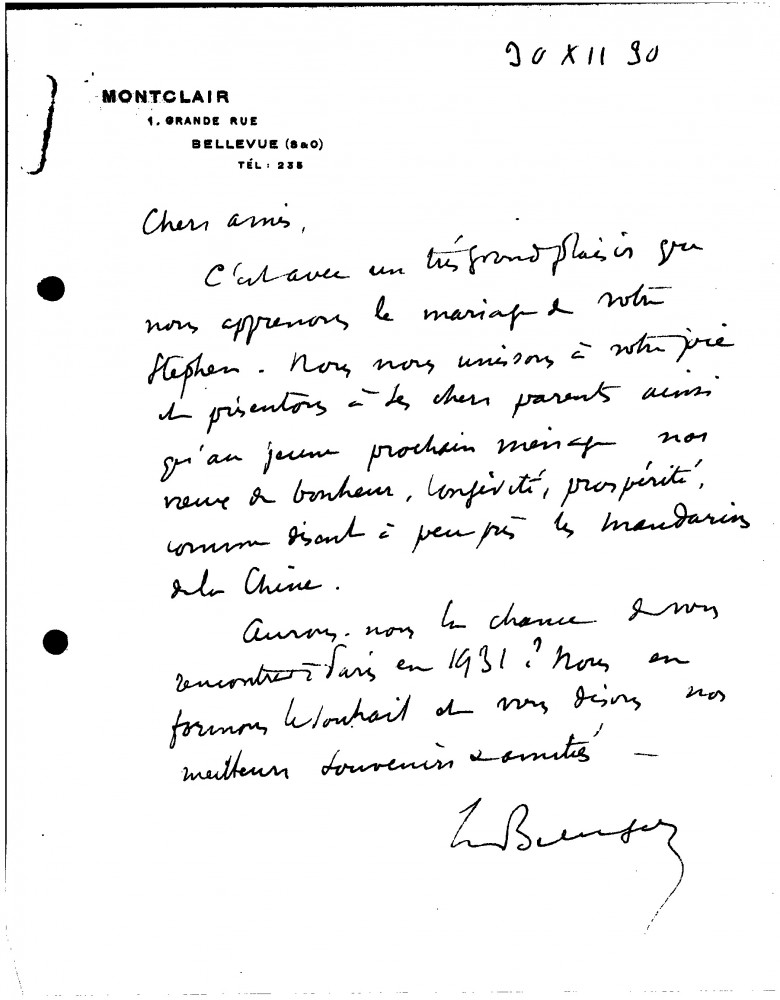 30 XII 30
MONTCLAIR
1. GRANDE RUE
BELLEVUE (S&O)
TÉL : 235
Chers amis,
C'est avec un très grand plaisir que
nous apprenons le mariage de votre
Stephen. Nous nous unissons à votre joie
et présentons à ses chers parents ainsi
qu'au jeune prochain ménage nos
vœux de bonheur, longévité, prospérité,
comme disent à peu près les mandarins
de la Chine.
Aurons-nous la chance de vous
rencontrer à Paris en 1931 ? Nous en
formons le souhait et vous disons nos
meilleurs souvenirs & amitiés —